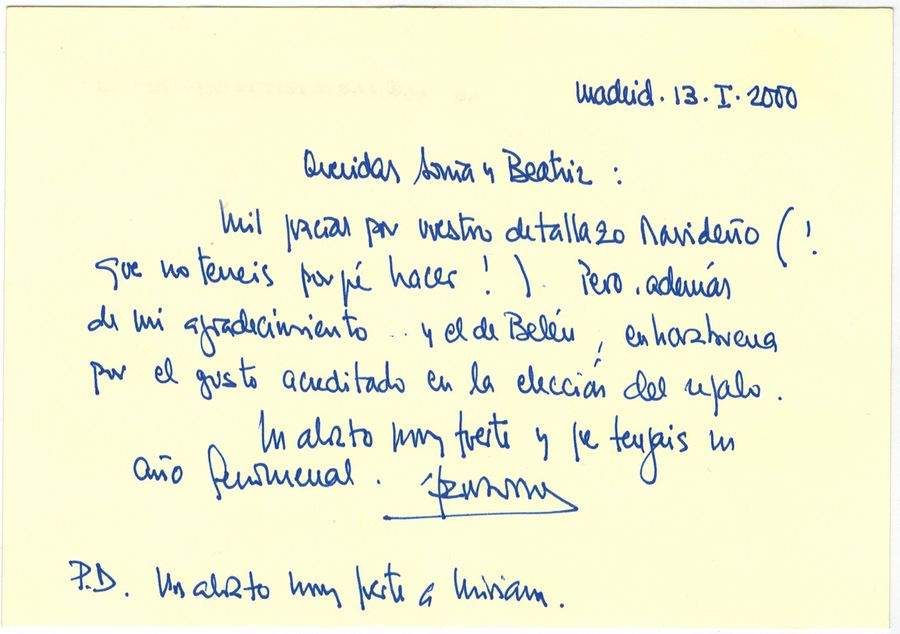 Madrid. 13. I. 2000
Queridas Sonia y Beatriz :
Mil gracias por vuestro detallazo Navideño (¡
que no teneis por qué hacer!). Pero, además
de mi agradecimiento .. y el de Belén, enhorabuena
por el gusto acreditado en la elección del regalo.
Un abrazo muy fuerte y que tengais un
año fenomenal.
P.D. Un abrazo muy fuerte a Miriam.